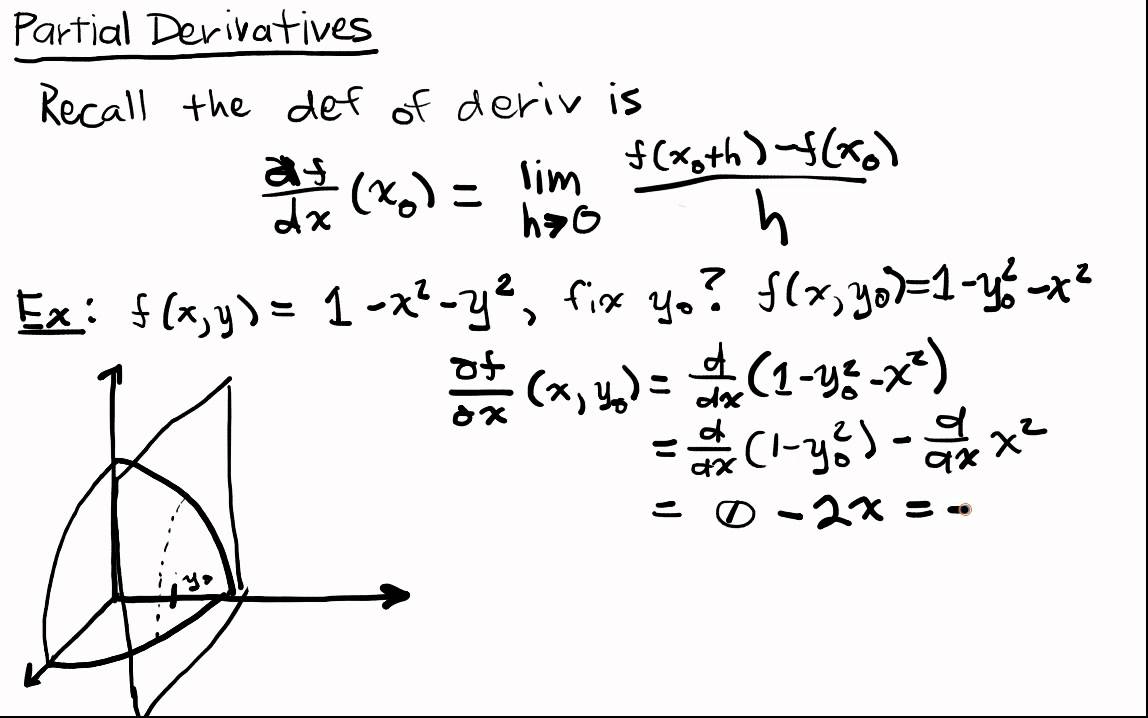 Partial Derivatives
Recall the def of deriv is
df/dx (x₀) = lim h→0 f(x₀+h)-f(x₀)/h
Ex: f(x,y) = 1-x²-y², fix y₀? f(x,y₀)=1-y₀²-x²
∂f/∂x (x,y₀) = d/dx (1-y₀²-x²)
= d/dx (1-y₀²) - d/dx x²
= 0 - 2x = -
y₀